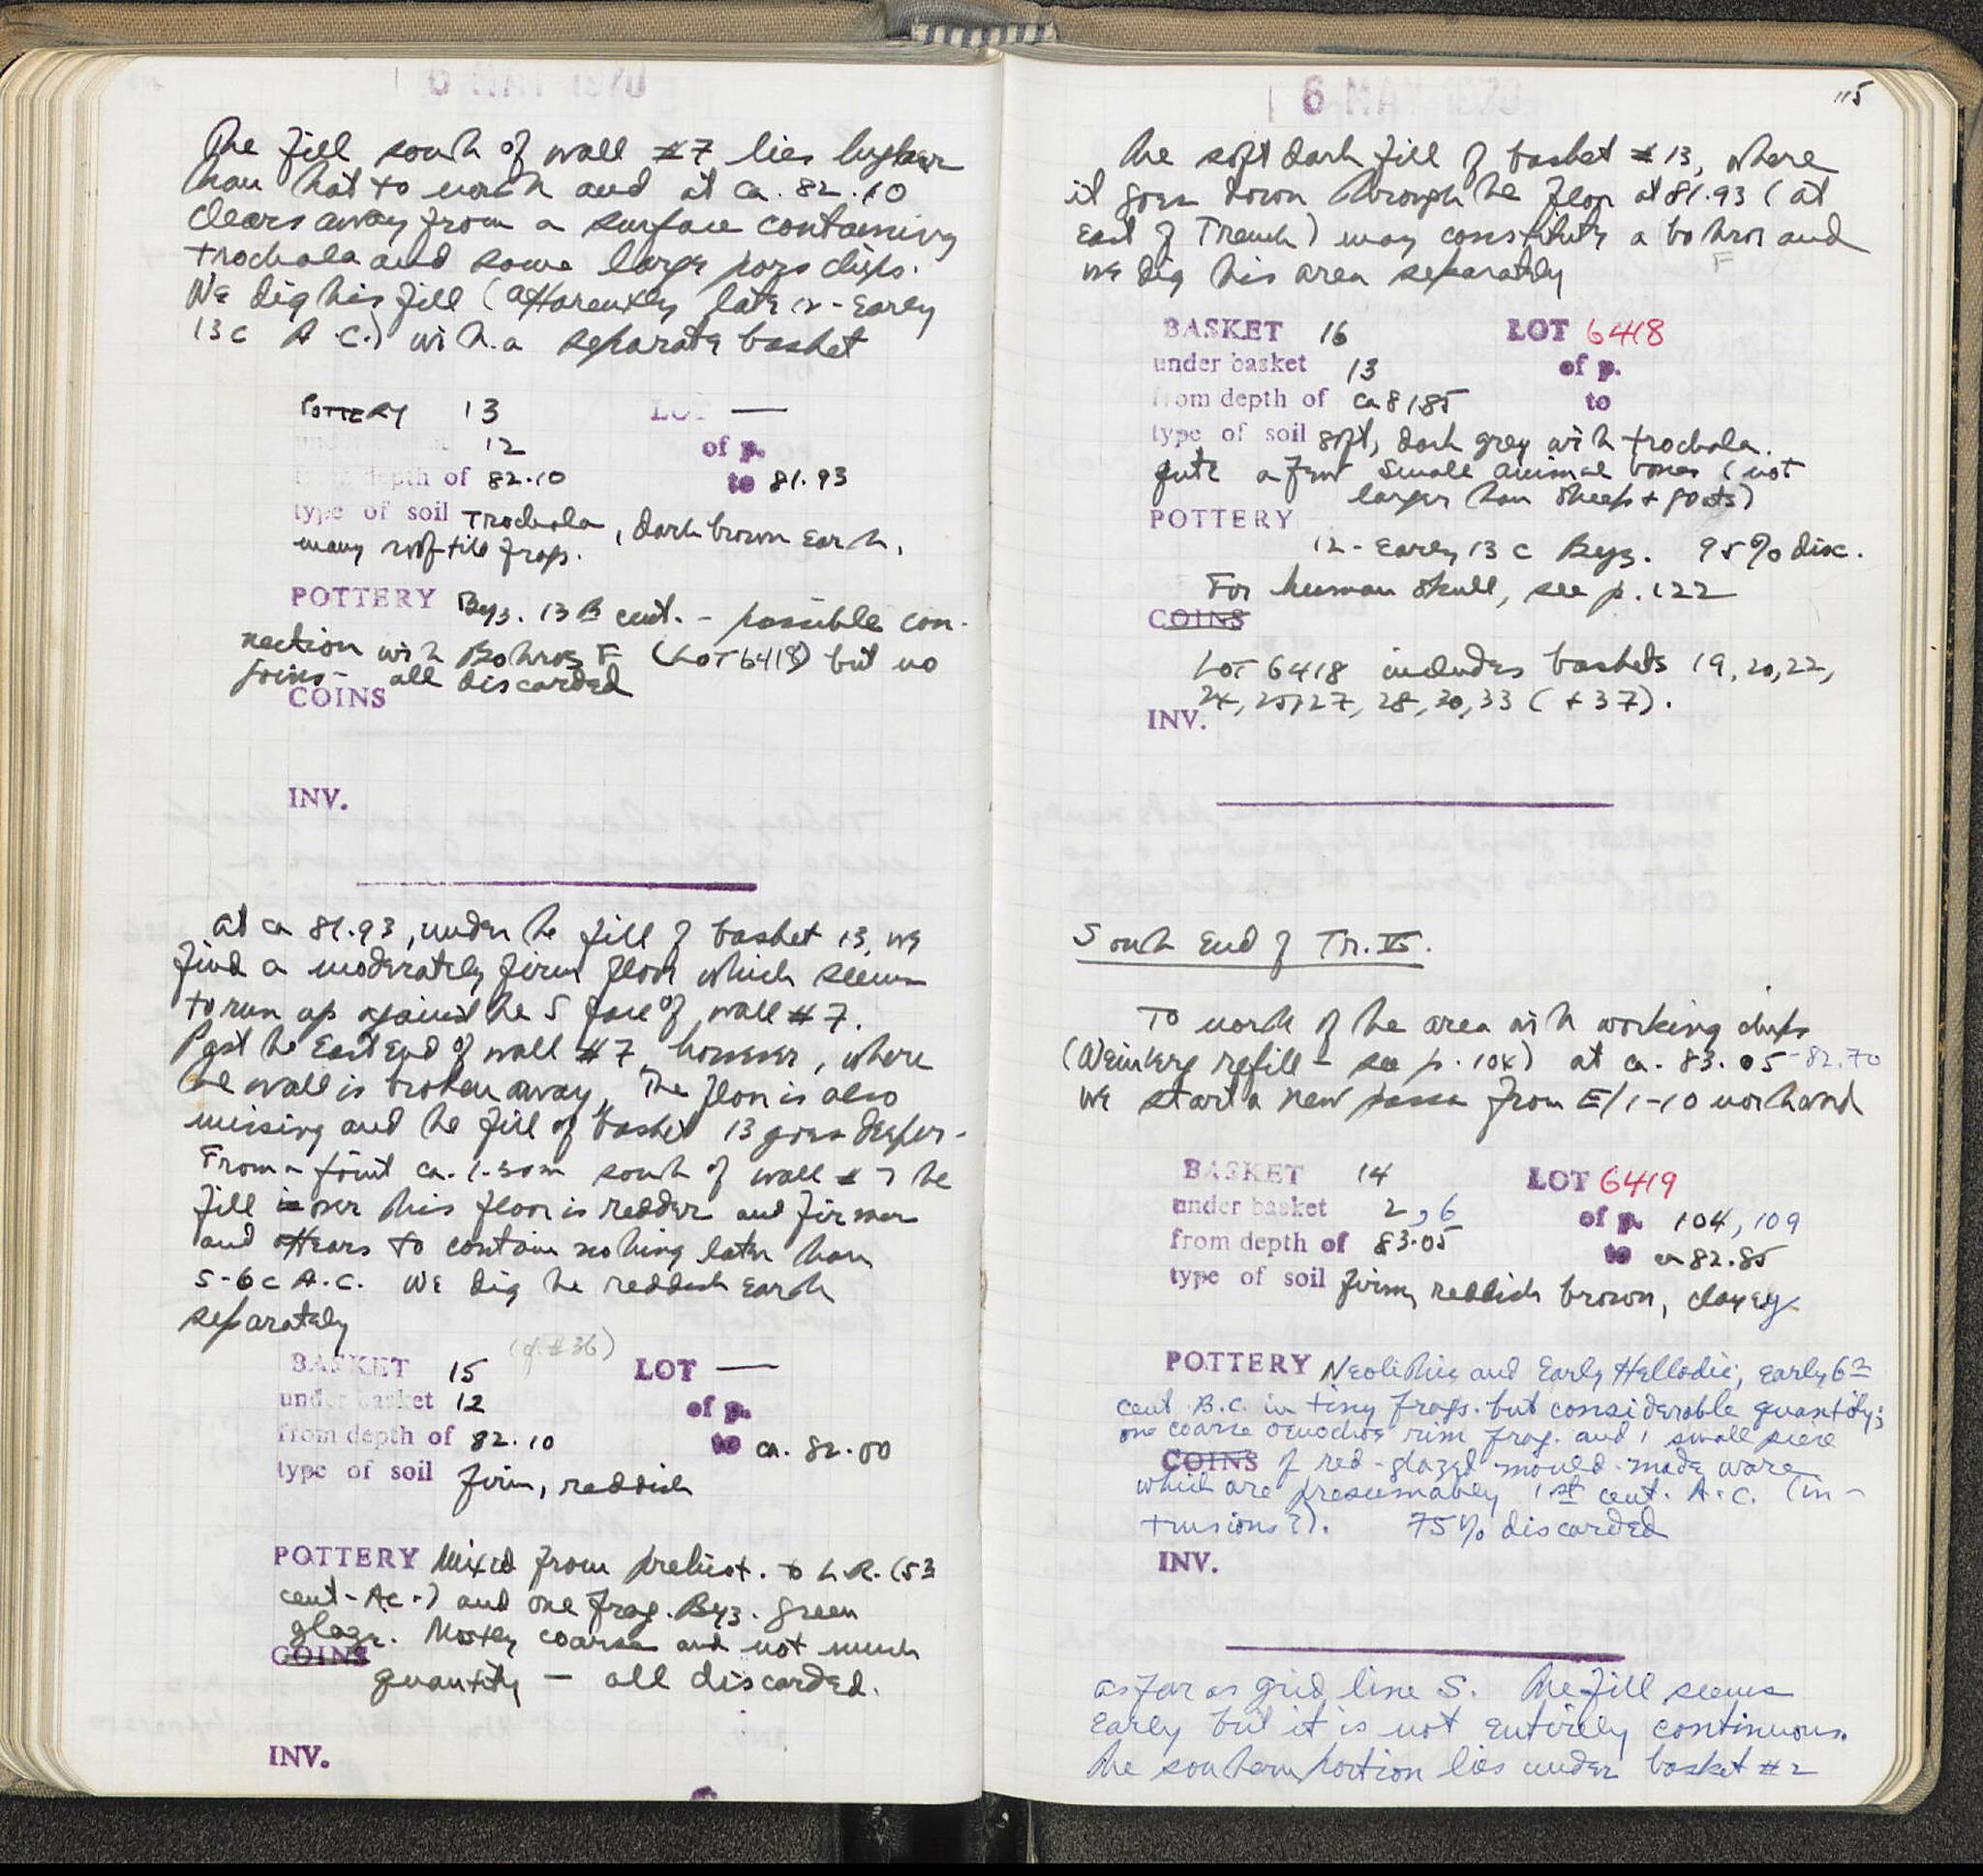 6 MAY 1970
The fill south of wall #7 lies higher
than that to north and at ca. 82.10
clears away from a surface containing
trochala and some large poros chips.
We dig this fill (apparently late 12 - early
13 c A.C.) with a separate basket
POTTERY 13 LOT —
12 of p.
depth of 82.10 to 81.93
type of soil Trochala, dark brown earth,
many roof-tile frags.
POTTERY Byz. 13 cent. - possible con-
nection with Bothros F (Lot 6418) but no
joins - all discarded
COINS
INV.
at ca 81.93, under the fill of basket 13, we
find a moderately firm floor which seems
to run up against the S face of wall #7.
Past the East End of wall #7, however, where
the wall is broken away, the floor is also
missing and the fill of basket 13 goes deeper.
From a point ca. 1.30m south of wall #7 the
fill over this floor is redder and firmer
and appears to contain nothing later than
5-6 c A.C. We dig the reddish earth
separately
(cf. #36)
BASKET 15 LOT —
under basket 12 of p.
from depth of 82.10 to ca. 82.00
type of soil firm, reddish
POTTERY Mixed from prehist. to L.R. (5
cent. A.C.) and one frag. Byz. green
glaze. Mostly coarse and not much
COINS
quantity — all discarded.
INV.
115
6 MAY 1970
The soft dark fill of basket #13, where
it goes down through the floor at 81.93 (at
East of Trench) may constitute a bothros and
F
we dig this area separately
BASKET 16 LOT 6418
under basket 13 of p.
from depth of ca 81.85 to
type of soil soft, dark grey with trochala.
quite a few small animal bones (not
larger than sheep + goats)
POTTERY
12 - Early 13 c Byz. 95% disc.
For human skull, see p. 122
COINS
Lot 6418 includes baskets 19, 20, 22,
24, 25, 27, 28, 30, 33 (+ 37).
INV.
South End of Tr.
To north of the area with working chips
(Weinberg refill - see p. 104) at ca. 83.05 - 82.70
we start a new pass from E/1-10 northward
BASKET 14 LOT 6419
under basket 2, 6 of p. 104, 109
from depth of 83.05 to ca 82.85
type of soil firm, reddish brown, clayey
POTTERY Neolithic and Early Helladic; early 6th
cent. B.C. in tiny frags. but considerable quantity;
one coarse oenochoe rim frag. and 1 small piece
COINS of red-glazed mould-made ware
which are presumably 1st cent. A.C. (in-
trusions?). 75% discarded
INV.
as far as grid line S. The fill seems
early but it is not entirely continuous.
The southern portion lies under basket #2